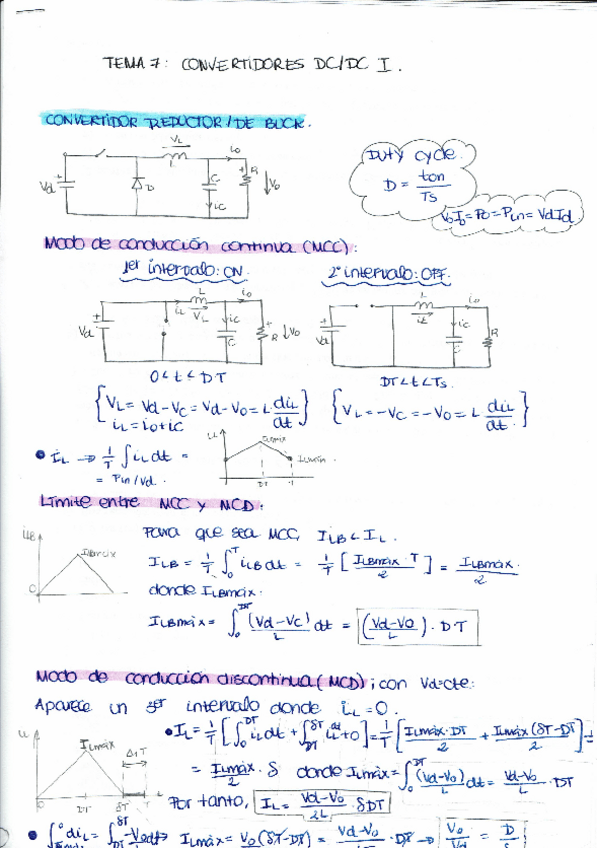 TEMA 7: CONVERTIDORES DC/DC I.
CONVERTIDOR REDUCTOR/DE BUCK.
VL
L
io
Vd
D
C
ic
R
Vo
Duty cycle.
D = ton/Ts
VoIo = Po = Pin = VdId
Modo de conducción continua (MCC):
1er intervalo: ON
2º intervalo: OFF.
L
io
iL
VL
ic
Vd
C
R
Vo
L
io
iL
ic
Vd
C
R
0 < t < DT
DT < t < Ts.
{VL = Vd - Vc = Vd - Vo = L · diL/dt}
iL = io + ic
{VL = -Vc = -Vo = L diL/dt}
• IL → 1/T ∫ iL dt =
= Pin/Vd.
ILmáx
ILmin
DT
Límite entre MCC y MCD:
Para que sea MCC, ILB < IL.
ILB = 1/T ∫0^T iLB dt = 1/T [ILBmáx · T / 2] = ILBmáx / 2
donde ILBmáx.
ILBmáx = ∫0^DT (Vd - Vc)/L dt = (Vd - Vo / L) · DT
iLB
ILBmáx
0
Modo de conducción discontinua (MCD); con Vd = cte:
Aparece un 3er intervalo donde iL = 0.
• IL = 1/T [∫0^DT iL dt + ∫DT^δT iL dt + 0] = 1/T [ILmáx · DT / 2 + ILmáx (δT - DT) / 2] =
= ILmáx / 2 · δ donde ILmáx = ∫0^DT (Vd - Vo)/L dt = Vd - Vo / L · DT
Por tanto, IL = Vd - Vo / 2L · δDT
ILmáx
Δ1T
0
DT
δT
T
ILmáx = Vo (δT - DT) = Vd - Vo · DT → Vo/Vd = D